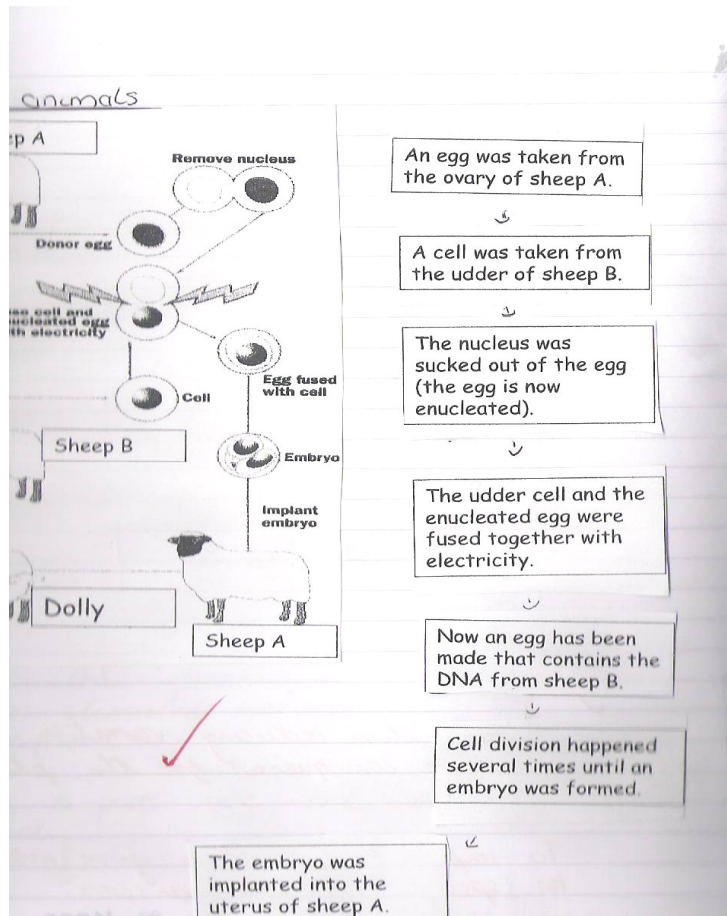 animals
p A
Remove nucleus
Donor egg
cell and
nucleated egg
th electricity
Egg fused
with cell
Cell
Sheep B
Embryo
Implant
embryo
Dolly
Sheep A
An egg was taken from
the ovary of sheep A.
A cell was taken from
the udder of sheep B.
The nucleus was
sucked out of the egg
(the egg is now
enucleated).
The udder cell and the
enucleated egg were
fused together with
electricity.
Now an egg has been
made that contains the
DNA from sheep B.
Cell division happened
several times until an
embryo was formed.
The embryo was
implanted into the
uterus of sheep A.